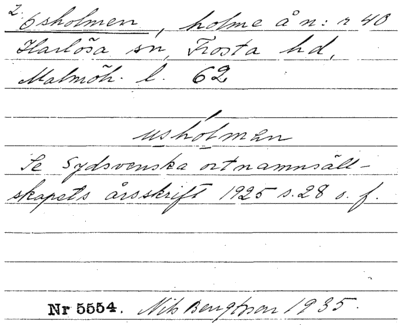 2.
Osholmen, holme å n:r 40
Harlösa sn, Frosta hd,
Malmöh. l. 62
usholmen
Se Sydsvenska ortnamnsäll-
skapets årsskrift 1925 s. 28 o. f.
Nr 5554. Nils Bengtsson 1935.